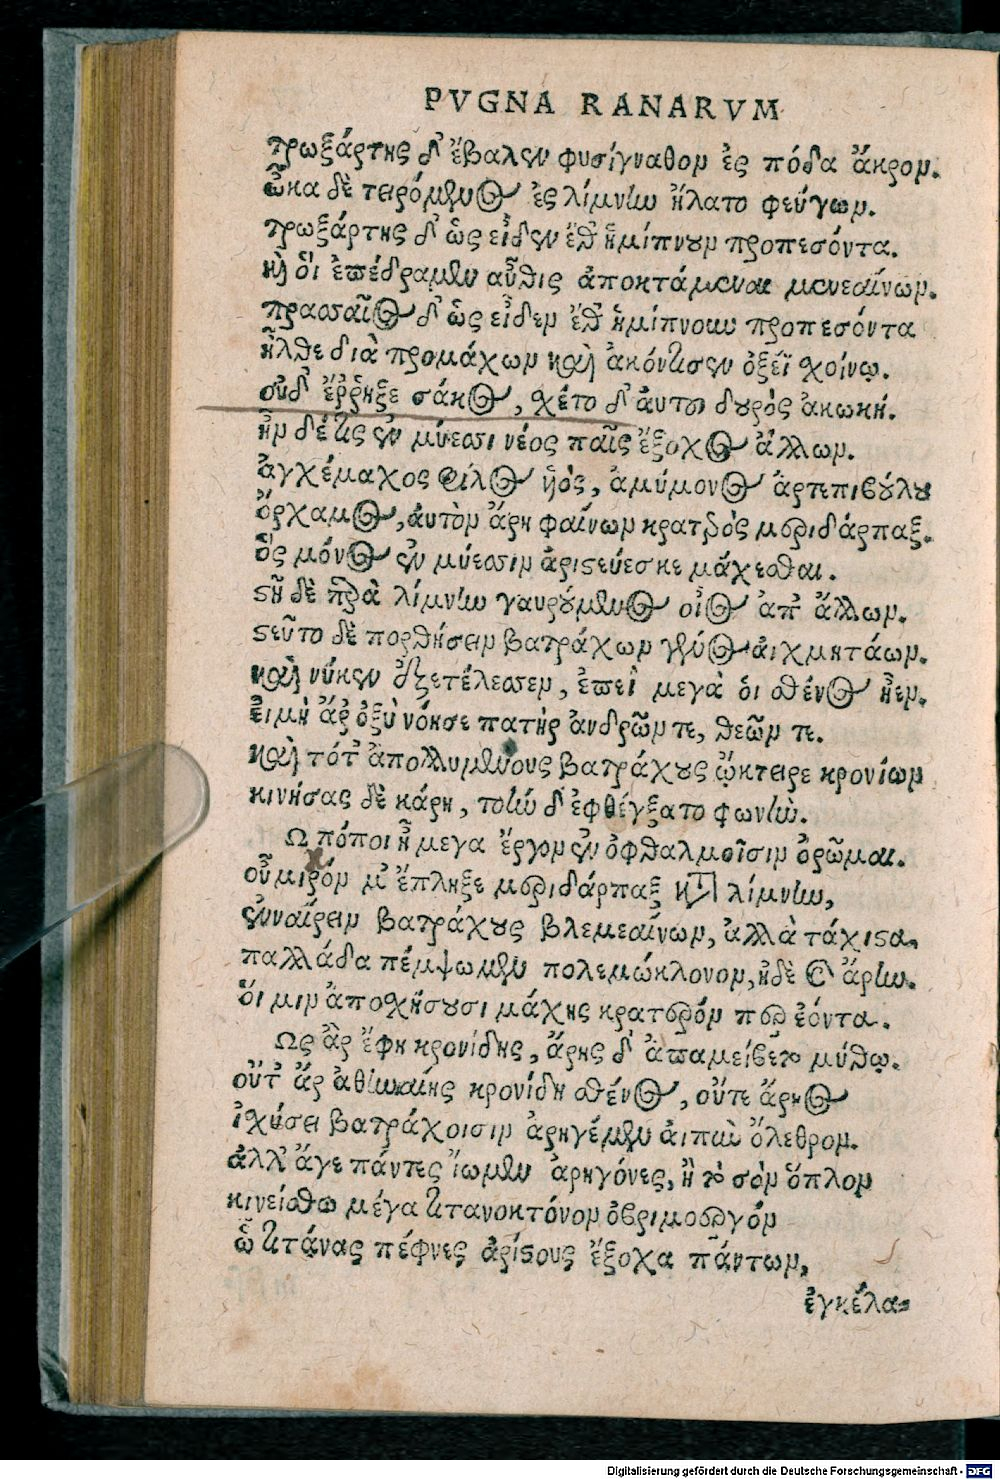 PVGNA RANARVM
τρωξάρτης δ' ἔβαλεν φυσίγναθον ἐς πόδα ἄκρον.
ὦκα δὲ τειρόμενος ἐς λίμνην ἥλατο φεύγων.
τρωξάρτης δ' ὡς εἶδεν ἔθ' ἡμίπνουν προπεσόντα.
καὶ οἵ ἐπέδραμεν αὖθις ἀποκτάμεναι μενεαίνων.
πρασσαῖος δ' ὡς εἶδεν ἔθ' ἡμίπνουν προπεσόντα
ἦλθε διὰ προμάχων καὶ ἀκόντισεν ὀξέϊ χοίνῳ.
οὐδ' ἔῤῥηξε σάκος, χέτο δ' ἀυτοῦ δουρὸς ἀκωκή.
ἦν δέ τις ἐν μύεσσι νέος παῖς ἔξοχος ἄλλων.
ἀγχέμαχος φίλος ὑιὸς, ἀμύμονος ἀρτεπιβούλου
ὄρχαμος, ἀυτὸν ἄρη φαίνων κρατερὸς μεριδάρπαξ.
ὃς μόνος ἐν μύεσσιν ἀριστεύεσκε μάχεσθαι.
στῆ δὲ παρὰ λίμνην γαυρούμενος οἶος ἀπ' ἄλλων.
στεῦτο δὲ πορθήσειν βατράχων γένος ἀιχμητάων.
καὶ νύκεν ἐξετέλεσσεν, ἐπεὶ μεγὰ ὁι σθένος ἦεν.
Ειμὴ ἄρ ὀξὺ νόησε πατὴρ ἀνδρῶν τε, θεῶν τε.
καὶ τότ' ἀπολλυμένους βατράχους ᾤκτειρε κρονίων
κινήσας δὲ κάρη, τοίην δ' ἐφθέγξατο φωνὴν.
Ω πόποι ἦ μεγα ἔργον ἐν ὀφθαλμοῖσιν ὁρῶμαι.
οὖ μικρόν μ' ἔπληξε μεριδάρπαξ κατὰ λίμνην,
ἐναίρειν βατράχους βλεμεαίνων, ἀλλὰ τάχιστα,
παλλάδα πέμψωμεν πολεμώκλονον, ἠδὲ καὶ ἄρην.
ὅι μιν ἀποσχήσουσι μάχης κρατερόν περ ἐόντα.
Ως ἂρ ἔφη κρονίδης, ἄρης δ' ἀπαμείβετο μύθῳ.
οὔτ' ἄρ ἀθηναίης κρονίδη σθένος, οὔτε ἄρηος
ἰχύσει βατράχοισιν ἀρηγέμεν ἀιπὺν ὄλεθρον.
ἀλλ' ἄγε πάντες ἴωμεν ἀρηγόνες, ἢ τὸ σὸν ὅπλον
κινείσθω μέγα τιτανοκτόνον ὀβριμοεργόν
ᾧ τιτάνας πέφνες ἀρίστους ἔξοχα πάντων,
ἐγκέλα-
Digitalisierung gefördert durch die Deutsche Forschungsgemeinschaft - DFG